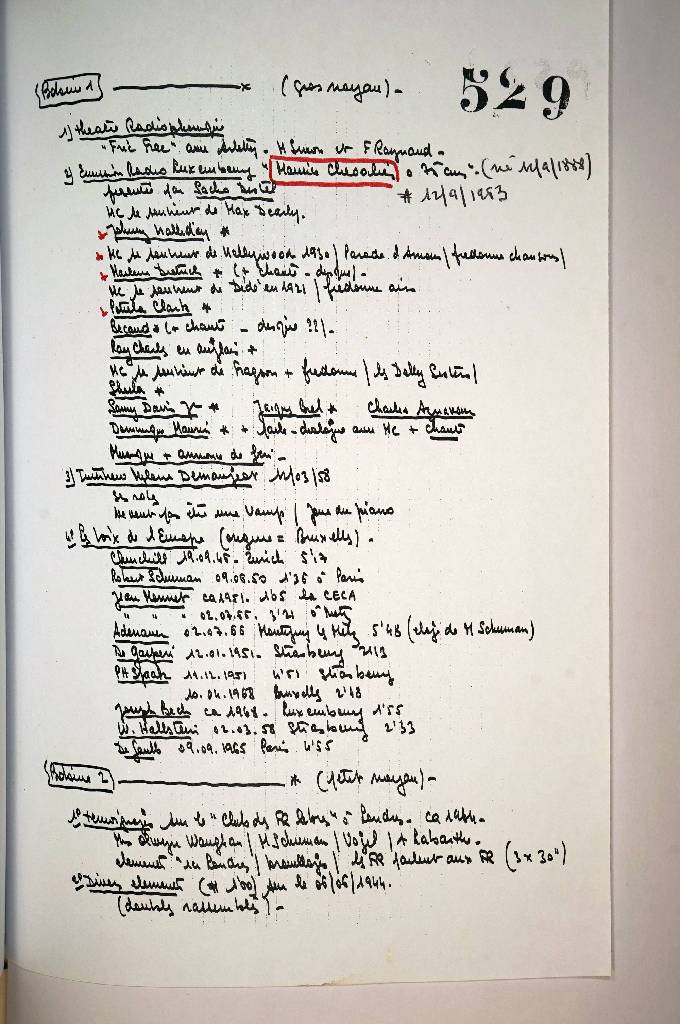 Bobine 1 ——— x (Gros noyau) -
529
1) Theatre Radiophonique
"Fric Frac" avec Arletty - M Simon et F Raynaud -
2) Emission Radio Luxembourg "Maurice Chevalier a 75 ans". (né 12/9/1888)
presentée par Sacha Distel # 12/9/1963
MC se souvient de Max Dearly.
Johnny Halliday *
MC se souvient de Hollywood 1930 / Parade d'Amour / fredonne chansons /
Marlene Dietrich * (+ chante - disque) -
MC se souvient de Dédé en 1921 / fredonne air
Petula Clark *
Becaud * (+ chante - disque ??) -
Ray Charles en anglais *
MC se souvient de Fragson + fredonne / les Dolly Sisters /
Sheila *
Samy Davis Jr * Jacques Brel * Charles Aznavour
Dominique * + dialogue avec MC + chante
Musique + annonce de fin -
3) Interview Mylene Demongeot 12/03/58
Ses roles
Ne veut pas être une Vamp / Joue du piano
4° Les Voix de l'Europe (origine = Bruxelles) -
Churchill 19.09.46 - Zurich 5'17
Robert Schuman 09.05.50 1'35 à Paris
Jean Monnet ca 1951 - 1'05 la CECA
" " " 02.07.66. 3'21 à Metz
Adenauer 02.07.66 Montigny les Metz 5'48 (eloge de M Schuman)
De Gasperi 12.01.1951 - Strasbourg 2'13
PH Spaak 11.12.1951 4'51 Strasbourg
10.04.1968 Bruxelles 2'13
Joseph Bech ca 1968 - Luxembourg 1'55
W. Hallstein 02.03.58 Strasbourg 2'33
De Gaulle 09.09.1965 Paris 4'55
Bobine 2 ——— * (petit noyau) -
1° temoignages sur le "Club des FR Libres" à Londres - ca 1944 -
Mrs Olwyn Vaughan / M Schuman / Vogel / A Labarthe -
element "ici Londres / brouillages / les FR parlent aux FR (3 x 30")
2° Divers elements (* 1'00) sur le 06/06/1944.
(doubles rassemblés) -